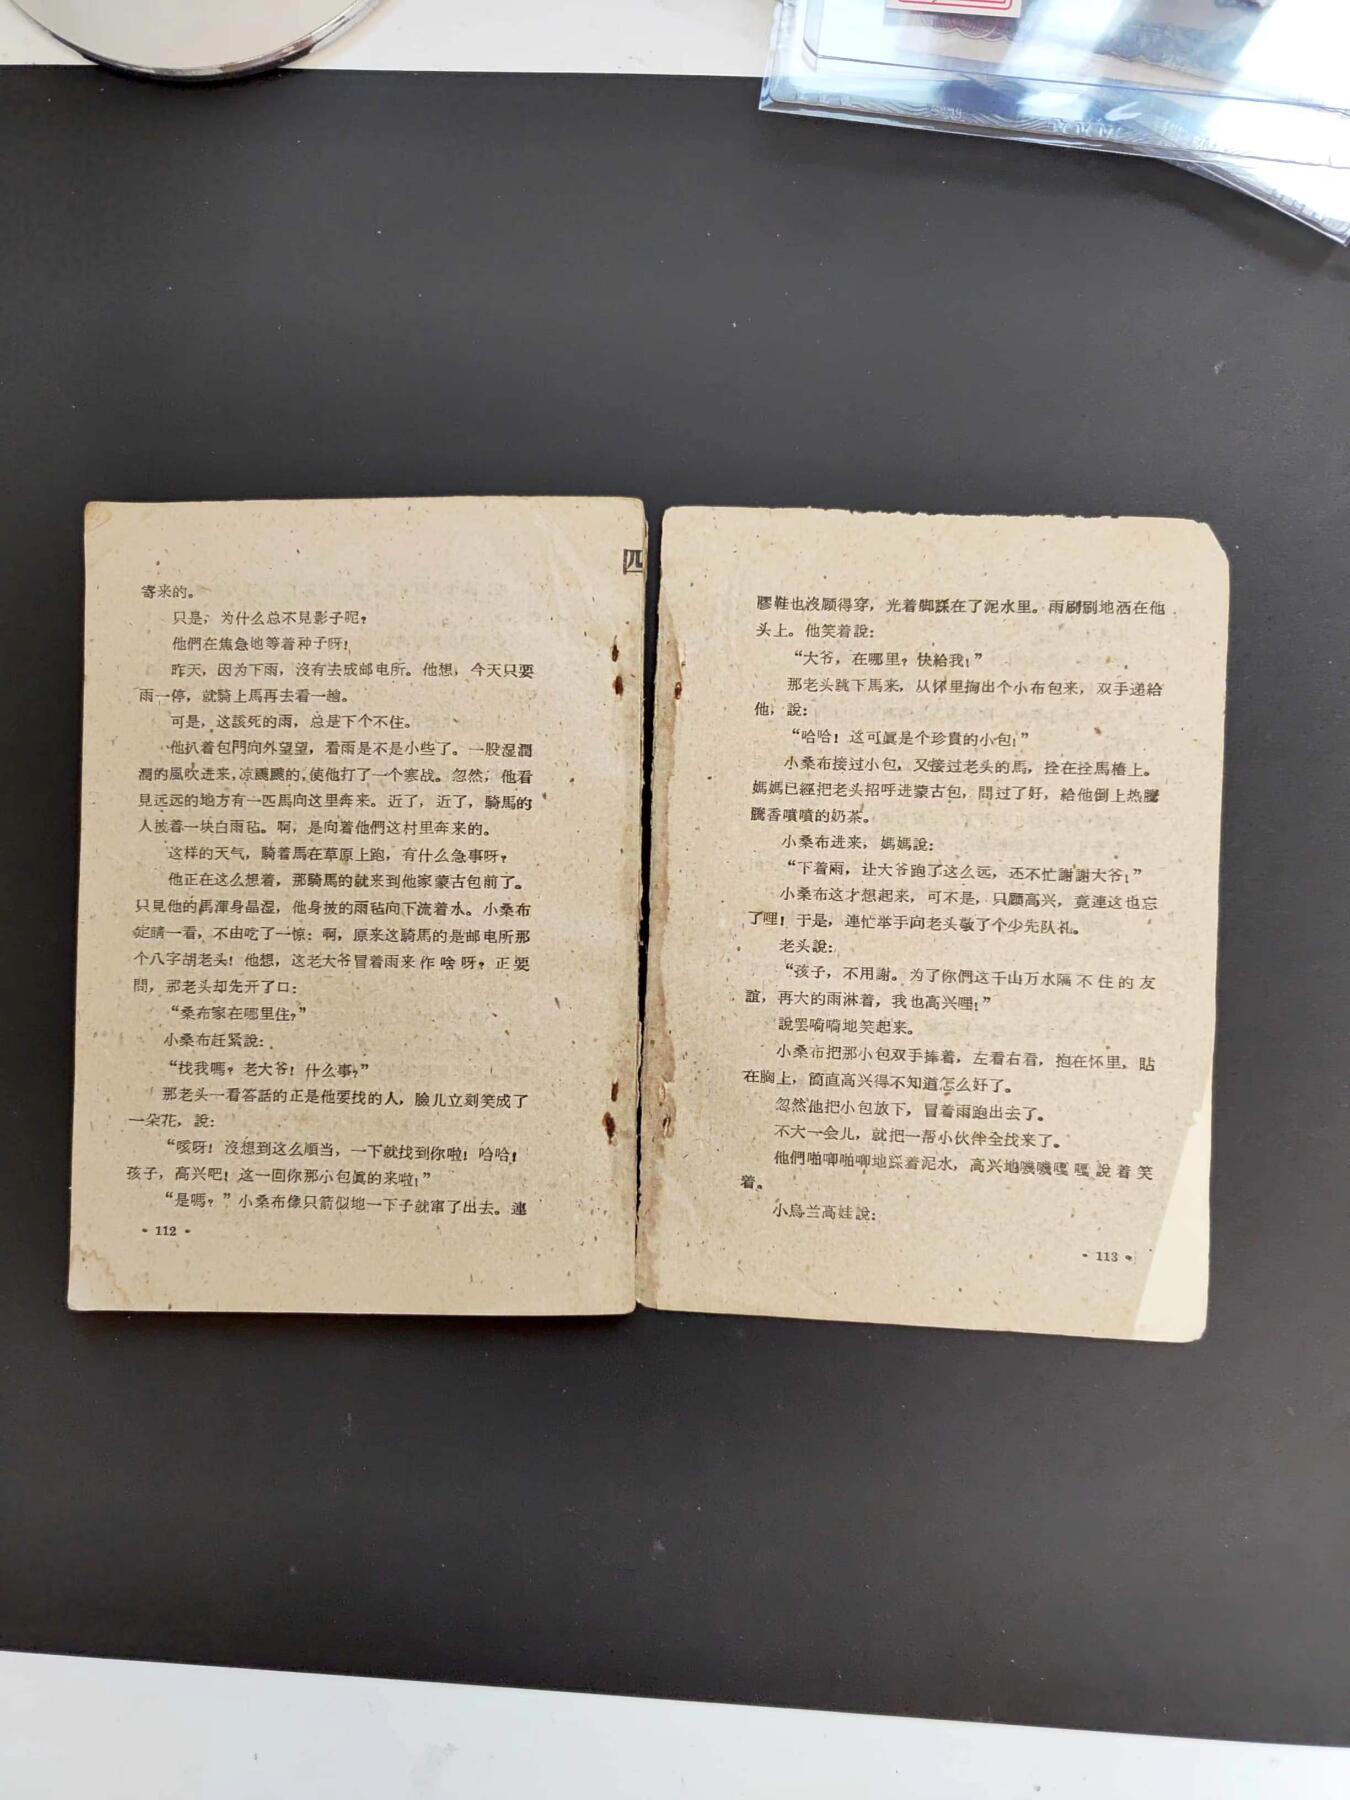 四
寄来的。
只是，为什么总不見影子呢？
他們在焦急地等着种子呀！
昨天，因为下雨，沒有去成邮电所。他想，今天只要
雨一停，就騎上馬再去看一趟。
可是，这該死的雨，总是下个不住。
他扒着包門向外望望，看雨是不是小些了。一股湿潤
潤的風吹进来，凉颼颼的，使他打了一个寒战。忽然，他看
見远远的地方有一匹馬向这里奔来。近了，近了，騎馬的
人披着一块白雨毡。啊，是向着他們这村里奔来的。
这样的天气，騎着馬在草原上跑，有什么急事呀？
他正在这么想着，那騎馬的就来到他家蒙古包前了。
只見他的馬渾身晶湿，他身披的雨毡向下流着水。小桑布
定睛一看，不由吃了一惊：啊，原来这騎馬的是邮电所那
个八字胡老头！他想，这老大爷冒着雨来作啥呀？正要
問，那老头却先开了口：
“桑布家在哪里住？”
小桑布赶紧說：
“找我嗎？老大爷！什么事？”
那老头一看答話的正是他要找的人，臉儿立刻笑成了
一朵花，說：
“咳呀！沒想到这么順当，一下就找到你啦！哈哈！
孩子，高兴吧！这一回你那小包眞的来啦！”
“是嗎？”小桑布像只箭似地一下子就窜了出去。連
· 112 ·
膠鞋也沒顾得穿，光着脚踩在了泥水里。雨刷刷地洒在他
头上。他笑着說：
“大爷，在哪里？快給我！”
那老头跳下馬来，从怀里掏出个小布包来，双手递給
他，說：
“哈哈！这可眞是个珍貴的小包！”
小桑布接过小包，又接过老头的馬，拴在拴馬樁上。
媽媽已經把老头招呼进蒙古包，問过了好，給他倒上热騰
騰香噴噴的奶茶。
小桑布进来，媽媽說：
“下着雨，让大爷跑了这么远，还不忙謝謝大爷！”
小桑布这才想起来，可不是，只顧高兴，竟連这也忘
了哩！于是，連忙举手向老头敬了个少先队礼。
老头說：
“孩子，不用謝。为了你們这千山万水隔不住的友
誼，再大的雨淋着，我也高兴哩！”
說罢嗬嗬地笑起来。
小桑布把那小包双手捧着，左看右看，抱在怀里，貼
在胸上，簡直高兴得不知道怎么好了。
忽然他把小包放下，冒着雨跑出去了。
不大一会儿，就把一帮小伙伴全找来了。
他們啪唧啪唧地踩着泥水，高兴地嘰嘰嘎嘎說着笑
着。
小烏兰高娃說：
· 113 ·